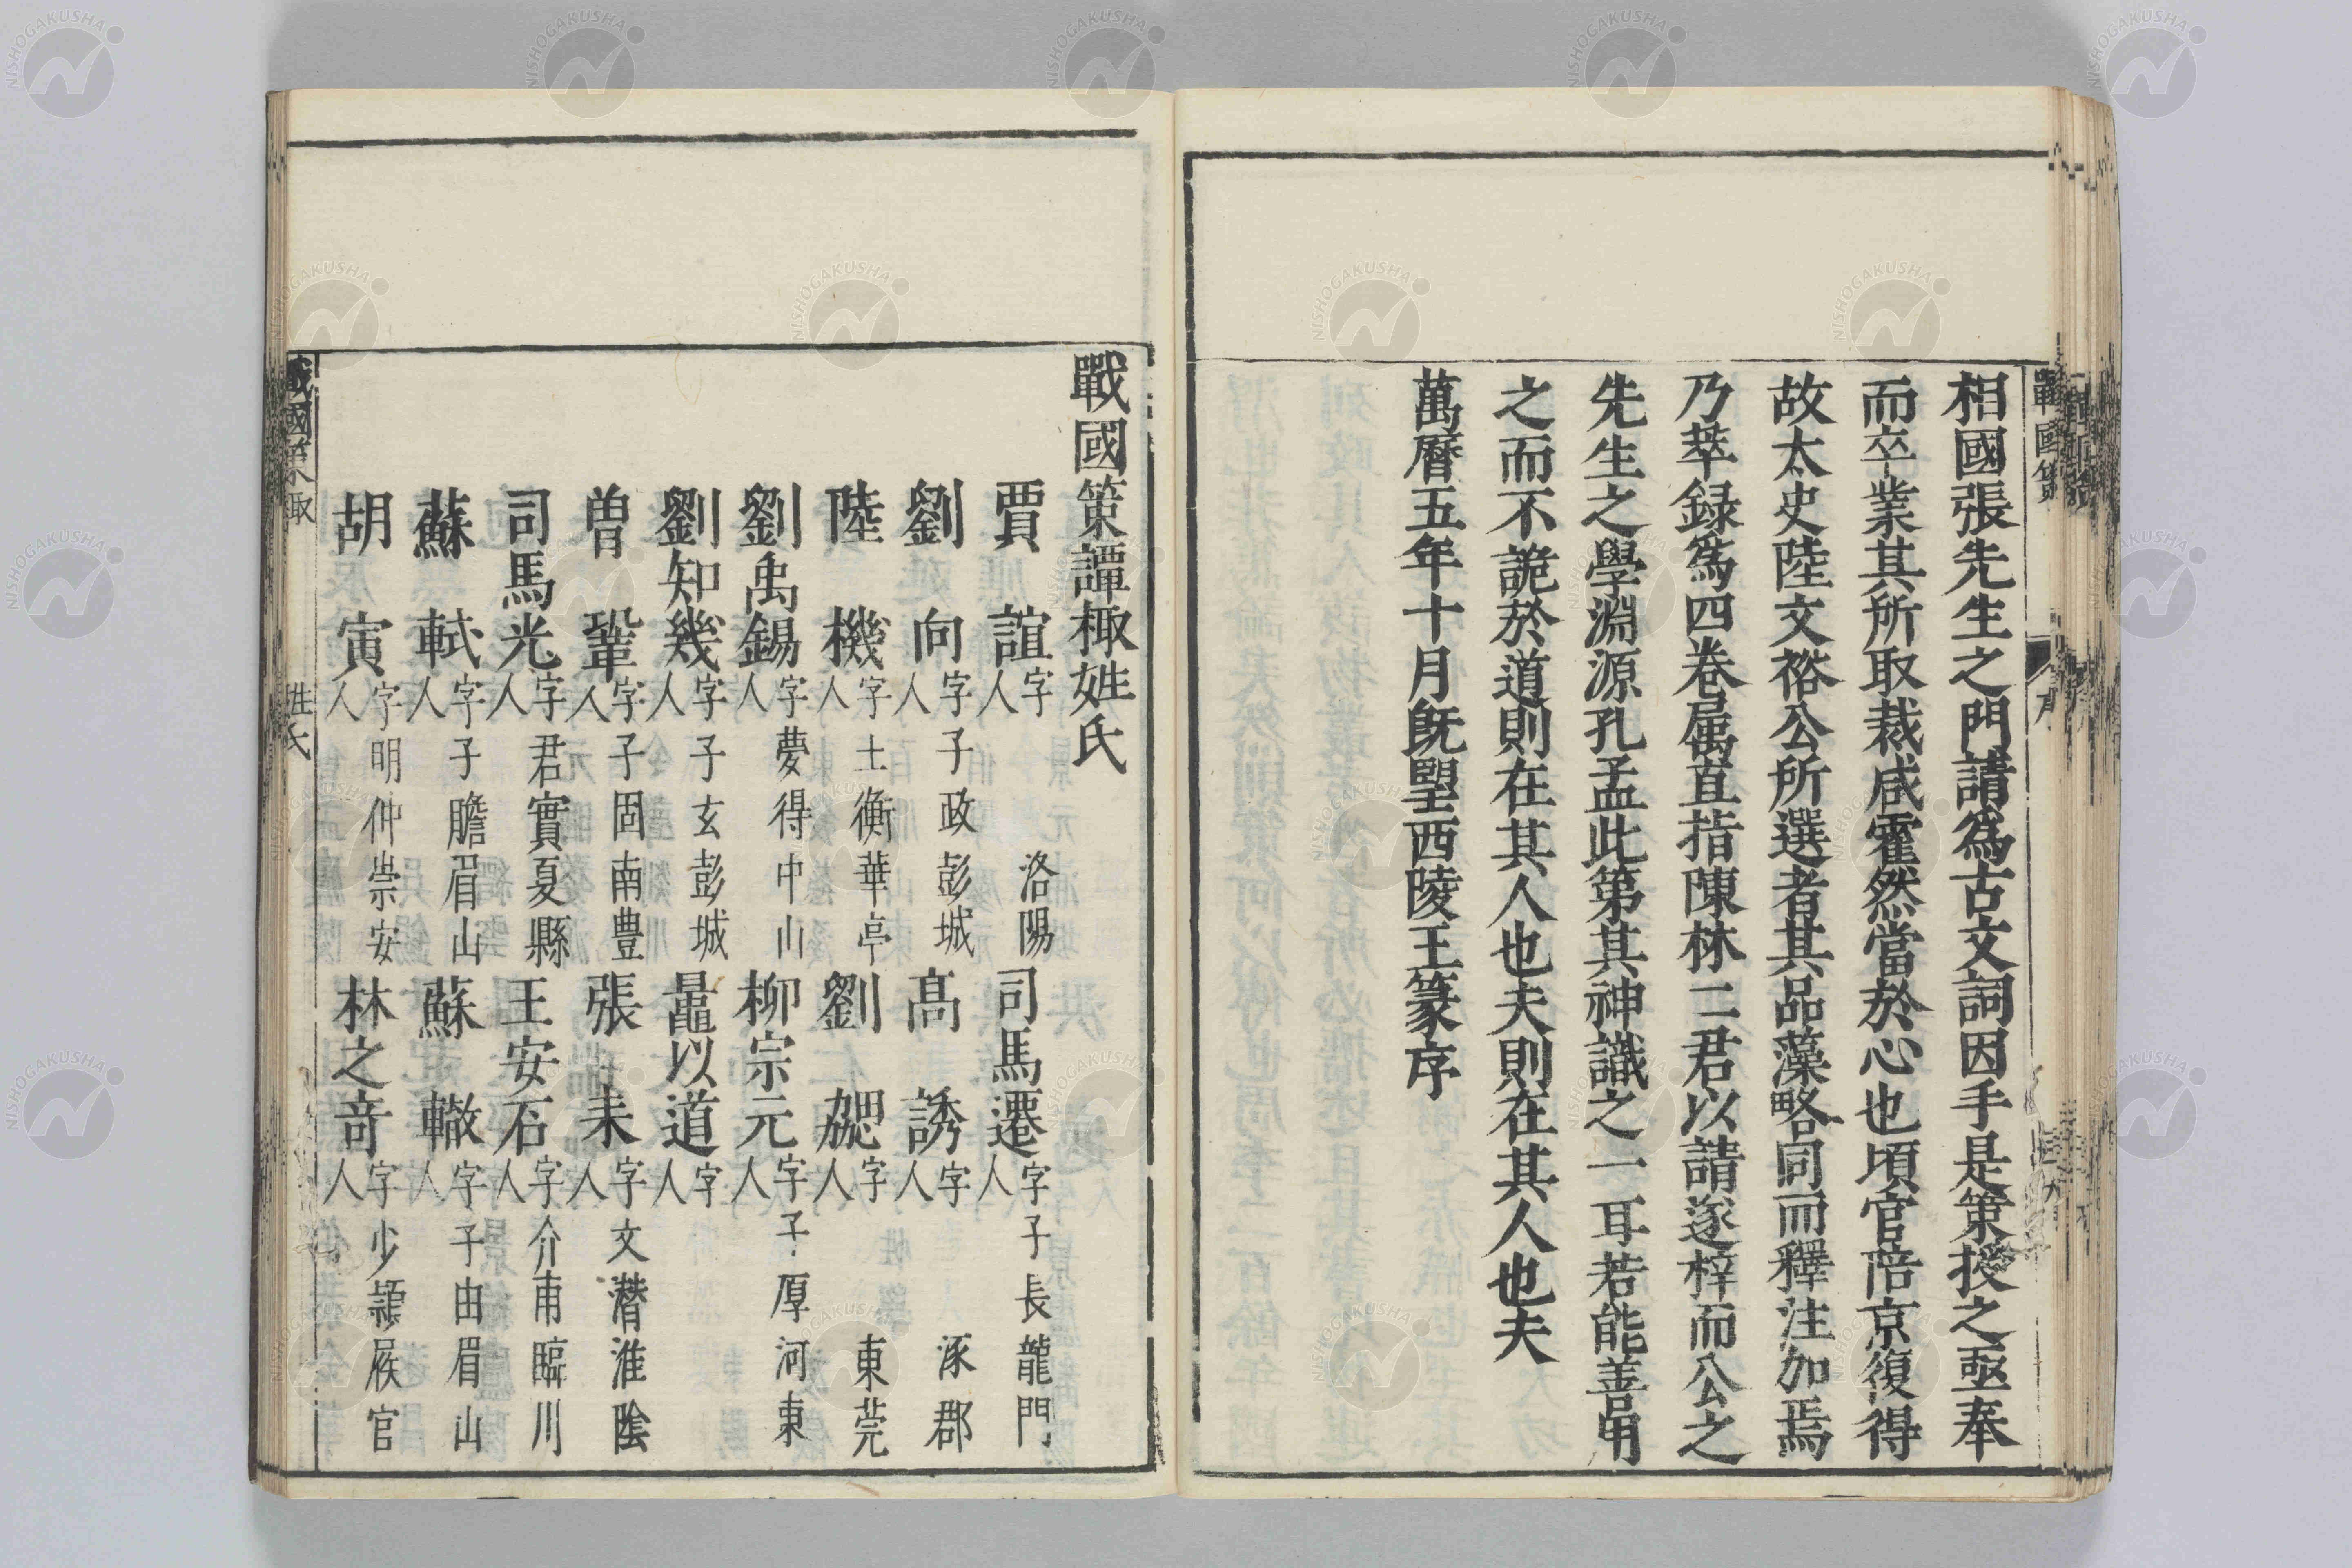 相國張先生之門請為古文詞因手是策授之亟奉
而卒業其所取裁咸霍然當於心也頃官陪京復得
故太史陸文裕公所選者其品藻略同而釋注加焉
乃萃録為四卷属直指陳林二君以請遂梓而公之
先生之學淵源孔孟此第其神識之一耳若能善用
之而不詭於道則在其人也夫則在其人也夫
萬曆五年十月既望西陵王篆序
戰國策譚棷姓氏
賈誼 字 洛陽人 司馬遷 字子長龍門人
劉向 字子政彭城人 高誘 字 涿郡人
陸機 字士衡華亭人 劉勰 字 東莞人
劉禹錫 字夢得中山人 柳宗元 字子厚河東人
劉知幾 字子玄彭城人 鼂以道 字人
曽鞏 字子固南豐人 張耒 字文潛淮陰人
司馬光 字君實夏縣人 王安石 字介甫臨川人
蘇軾 字子瞻眉山人 蘇轍 字子由眉山人
胡寅 字明仲崇安人 林之奇 字少穎候官人
姓氏
NISHOGAKUSHA